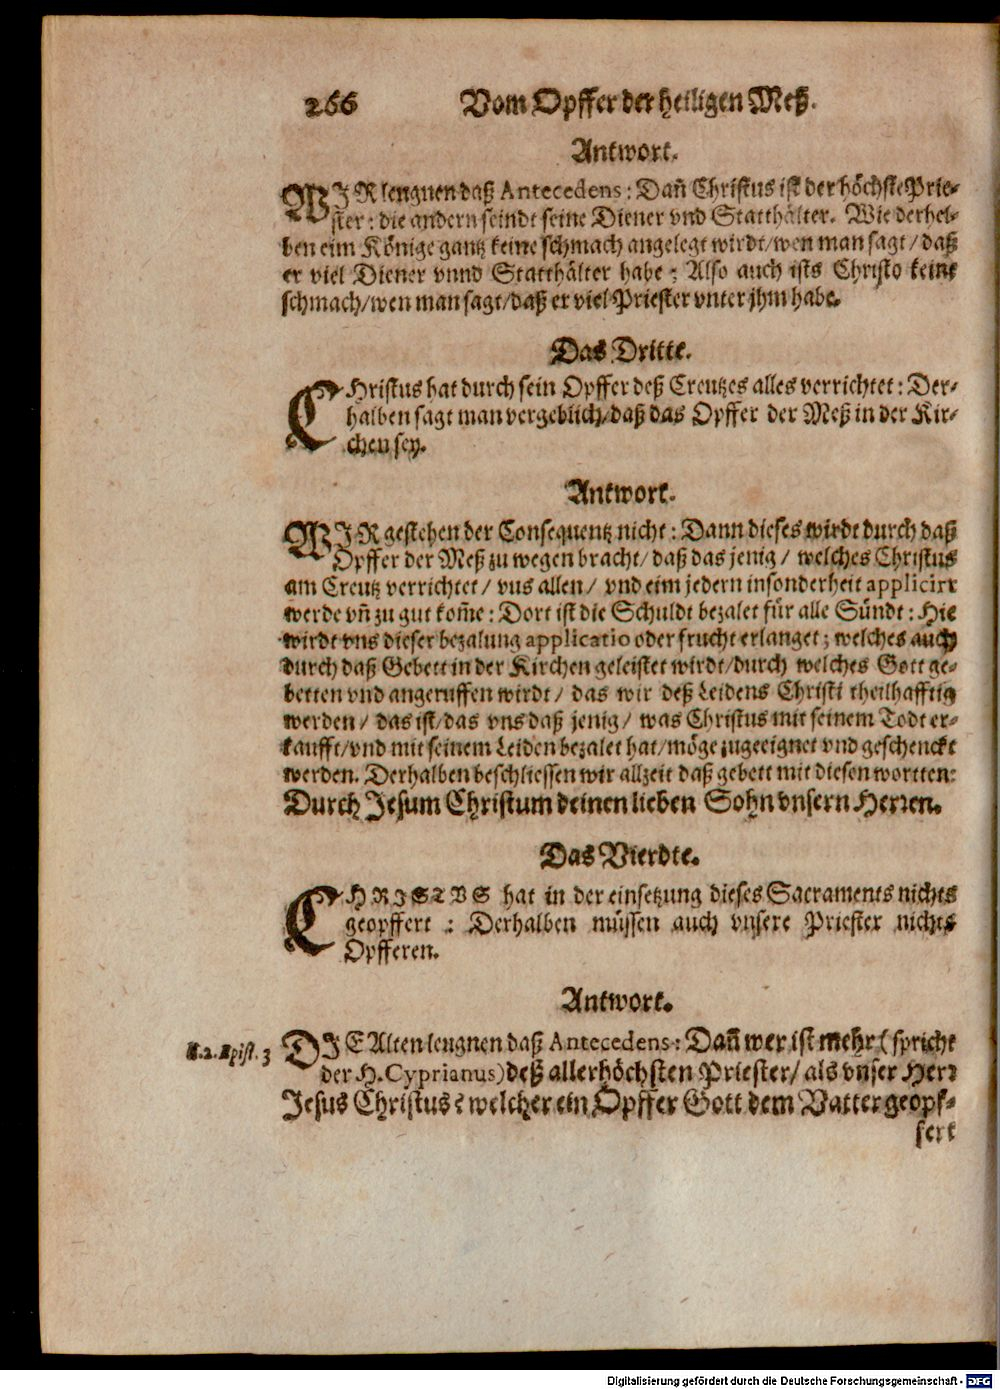 266 Vom Opffer der heiligen Meß.
Antwort.
WIR leugnen daß Antecedens: Dañ Christus ist der höchste Prie-
ster: die andern seindt seine Diener vnd Statthälter. Wie derhel-
ben eim Könige gantz keine schmach angelegt wirdt/wen man sagt/daß
er viel Diener vnnd Statthälter habe: Also auch ists Christo keine
schmach/wen man sagt/daß er viel Priester vnter jhm habe.
Das Dritte.
CHristus hat durch sein Opffer deß Creutzes alles verrichtet: Der-
halben sagt man vergeblich/daß das Opffer der Meß in der Kir-
chen sey.
Antwort.
WIR gestehen der Consequentz nicht: Dann dieses wirdt durch daß
Opffer der Meß zu wegen bracht/daß das jenig/ welches Christus
am Creutz verrichtet/ vns allen/ vnd eim jedern insonderheit applicirt
werde vñ zu gut kom̃e: Dort ist die Schuldt bezalet für alle Sündt: Hie
wirdt vns dieser bezalung applicatio oder frucht erlanget; welches auch
durch daß Gebett in der Kirchen geleistet wirdt/durch welches Gott ge-
betten vnd angeruffen wirdt/ das wir deß Leidens Christi theilhafftig
werden/ das ist/das vns daß jenig/ was Christus mit seinem Todt er-
kaufft/vnd mit seinem Leiden bezalet hat/möge zugeeignet vnd geschenckt
werden. Derhalben beschliessen wir allzeit daß gebett mit diesen wortten:
Durch Jesum Christum deinen lieben Sohn vnsern Herren.
Das Vierdte.
CHRISTVS hat in der einsetzung dieses Sacraments nichts
geopffert: Derhalben müssen auch vnsere Priester nichts
Opfferen.
Antwort.
l.2. Epist. 3
DIE Alten leugnen daß Antecedens: Dañ wer ist mehr (spricht
der H. Cyprianus) deß allerhöchsten Priester/ als vnser Herr
Jesus Christus? welcher ein Opffer Gott dem Vatter geopf-
fert
Digitalisierung gefördert durch die Deutsche Forschungsgemeinschaft - DFG